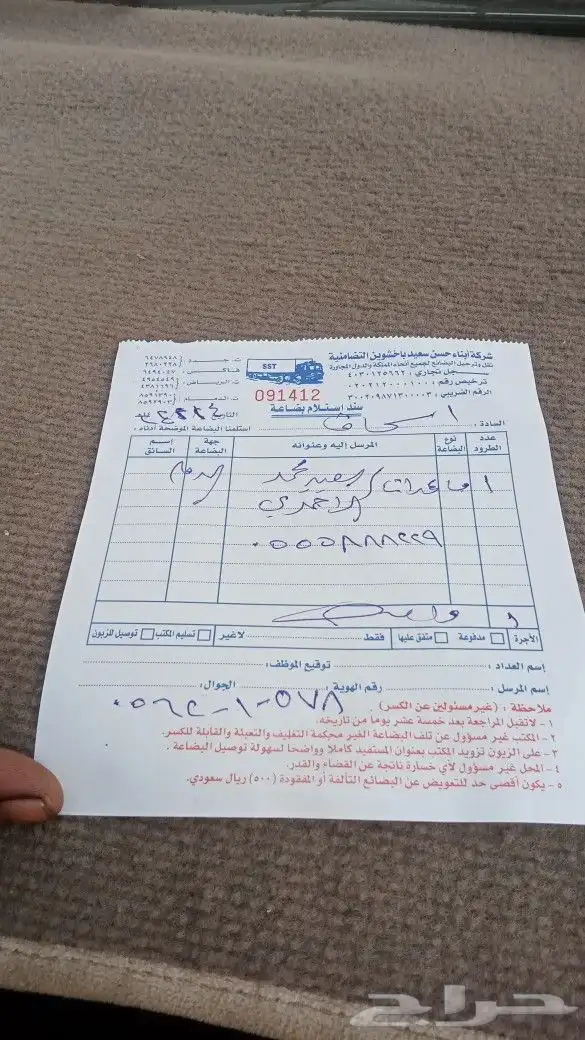 شركة أبناء حسن سعيد باخشوين التضامنية
نقل وترحيل البضائع لجميع أنحاء المملكة والدول المجاورة
سجل تجاري : ٤٠٣٠١٢٥٦٦٢
الرقم الضريبي : ٣٠٠٢٠٩٨٧١٣٠٠٠٠٣
SST
091412
سند إستلام بضاعة
التاريخ
السادة : اسحاق
استلمنا البضاعة الموضحة أدناه :
عدد الطرود
نوع البضاعة
المرسل إليه وعنوانه
جهة البضاعة
إسم السائق
١
سعيد محمد
الدمام
الاحمدي
٠٥٥٥٨٨٨٢٢٩
١ واحد
الأجرة
مدفوعة
متفق عليها
فقط
لاغير
تسليم المكتب
توصيل للزبون
إسم العداد :
توقيع الموظف :
إسم المرسل :
رقم الهوية :
الجوال :
٠٥٦٢٠١٠٥٧٨
ملاحظة : (غير مسئولين عن الكسر)
١ - لاتقبل المراجعة بعد خمسة عشر يوماً من تاريخه.
٢ - المكتب غير مسؤول عن تلف البضاعة الغير محكمة التغليف والتعبئة والقابلة للكسر.
٣ - على الزبون تزويد المكتب بعنوان المستفيد كاملاً وواضحاً لسهولة توصيل البضاعة .
٤ - المحل غير مسؤول لأي خسارة ناتجة عن القضاء والقدر.
٥ - يكون أقصى حد للتعويض عن البضائع التالفة أو المفقودة (٥٠٠) ريال سعودي.
حراج